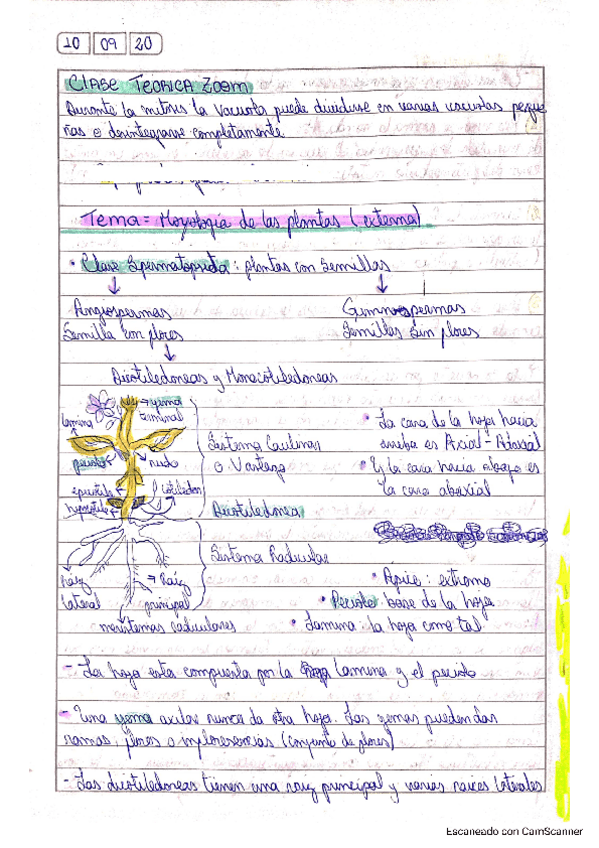 10 09 20
CLASE TEÓRICA ZOOM
Durante la mitosis la vacuola puede dividirse en varias vacuolas peque
ñas o desintegrarse completamente
Tema = Morfología de las plantas (externa)
• Clase Espermatophyta: plantas con semillas
Angiospermas
Semilla con flores
Gimnospermas
Semillas sin flores
Dicotiledoneas y Monocotiledoneas
yema
terminal
lamina
peciolo
nudo
epicotilo
hipocotilo
cotiledon
Sistema Caulinar
o Vastago
Dicotiledonea
Sistema Radicular
Raiz
lateral
Raiz
principal
meristemas radiculares
• La cara de la hoja hacia
arriba es Axial - Adaxial
• Y la cara hacia abajo es
la cara abaxial
• Apice: extremo
• Peciolo base de la hoja
• Lamina: la hoja como tal
- La hoja esta compuesta por la lamina y el peciolo
- Una yema axilar nunca da otra hoja. Las yemas pueden dar
ramas, flores o inflorescencias (conjunto de flores)
- Las dicotiledoneas tienen una raiz principal y varias raices laterales
Escaneado con CamScanner